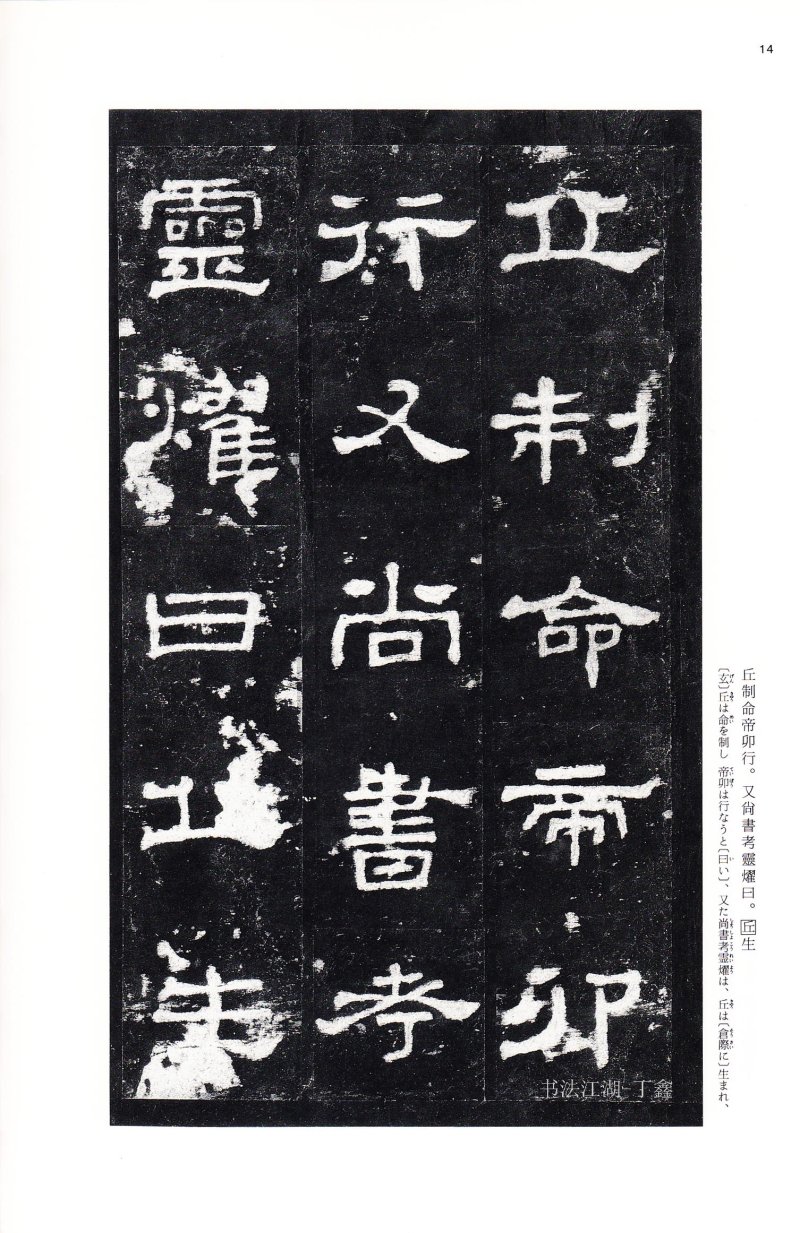 14
丘制命帝卯
行又尚書考
靈燿曰丘生
丘制命帝卯行。又尚書考靈燿曰。丘生
〔玄〕丘は命を制し 帝卯は行なうと〔曰い〕、又た尚書考霊燿は、丘は〔倉際に〕生まれ、
书法江湖 丁鑫